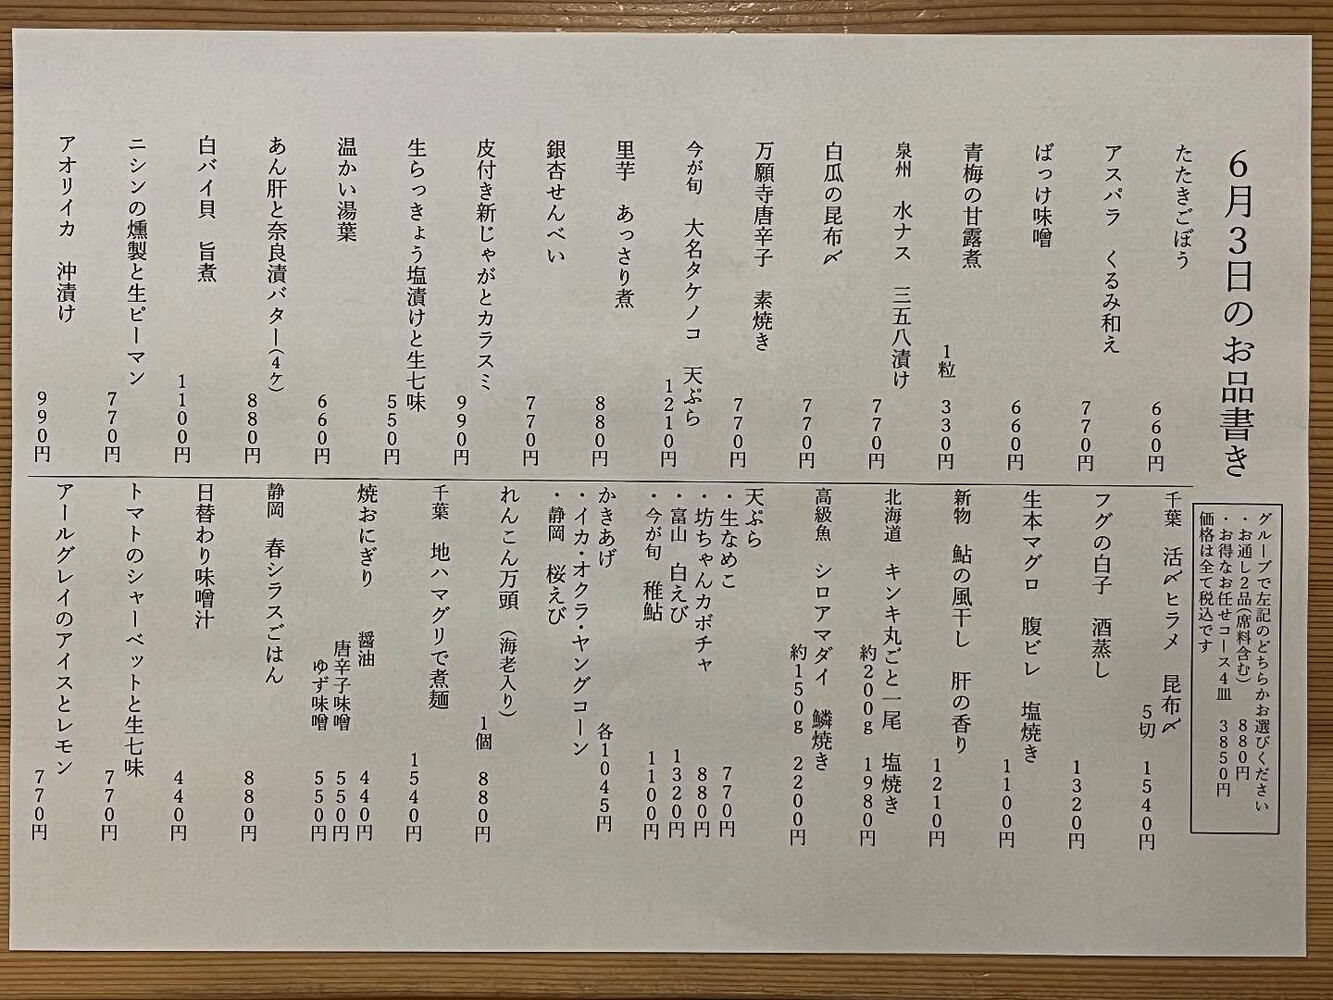 6月3日のお品書き
グループで左記のどちらかお選びください
・お通し2品(席料含む)　880円
・お得なお任せコース4皿　3850円
価格は全て税込です
たたきごぼう　660円
アスパラ　くるみ和え　770円
ばっけ味噌　660円
青梅の甘露煮　1粒　330円
泉州　水ナス　三五八漬け　770円
白瓜の昆布〆　770円
万願寺唐辛子　素焼き　770円
今が旬　大名タケノコ　天ぷら　1210円
里芋　あっさり煮　880円
銀杏せんべい　770円
皮付き新じゃがとカラスミ　990円
生らっきょう塩漬けと生七味　550円
温かい湯葉　660円
あん肝と奈良漬バター(4ケ)　880円
白バイ貝　旨煮　1100円
ニシンの燻製と生ピーマン　770円
アオリイカ　沖漬け　990円
千葉　活〆ヒラメ　昆布〆　5切　1540円
フグの白子　酒蒸し　1320円
生本マグロ　腹ビレ　塩焼き　1100円
新物　鮎の風干し　肝の香り　1210円
北海道　キンキ丸ごと一尾　塩焼き
約200g　1980円
高級魚　シロアマダイ　鱗焼き
約150g　2200円
天ぷら
・生なめこ　770円
・坊ちゃんカボチャ　880円
・富山　白えび　1320円
・今が旬　稚鮎　1100円
かきあげ　各1045円
・イカ・オクラ・ヤングコーン
・静岡　桜えび
れんこん万頭　(海老入り)　1個　880円
千葉　地ハマグリで煮麺　1540円
焼おにぎり　醤油　440円
唐辛子味噌　550円
ゆず味噌　550円
静岡　春シラスごはん　880円
日替わり味噌汁　440円
トマトのシャーベットと生七味　770円
アールグレイのアイスとレモン　770円